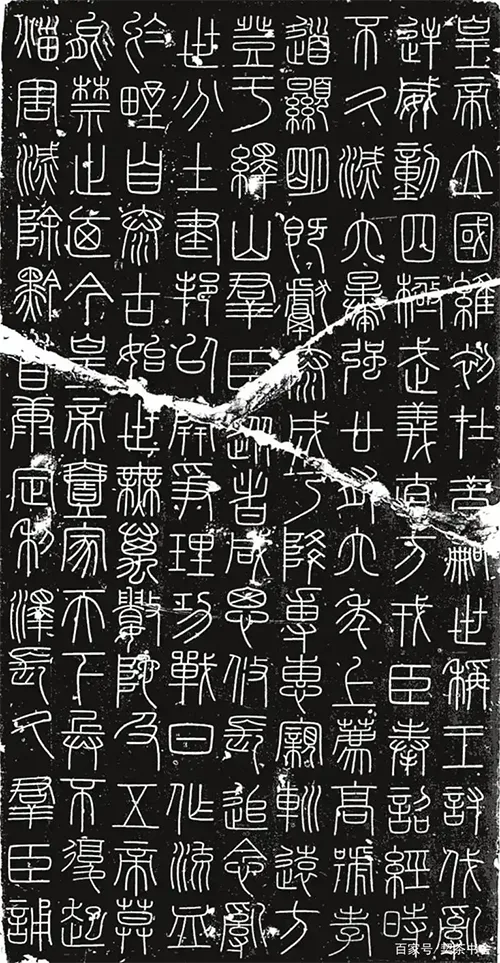 皇帝立國維初在昔嗣世稱王討伐亂
逆威動四極武義直方戎臣奉詔經時
不久滅六暴強廿有六年上薦高號孝
道顯明既獻泰成乃降專惠親巡遠方
登于繹山群臣從者咸思攸長追念亂
世分土建邦以開爭理功戰日作流血
於野自泰古始世無萬數陀及五帝莫
能禁止迺今皇帝壹家天下兵不復起
災害滅除黔首康定利澤長久群臣誦
百家号/